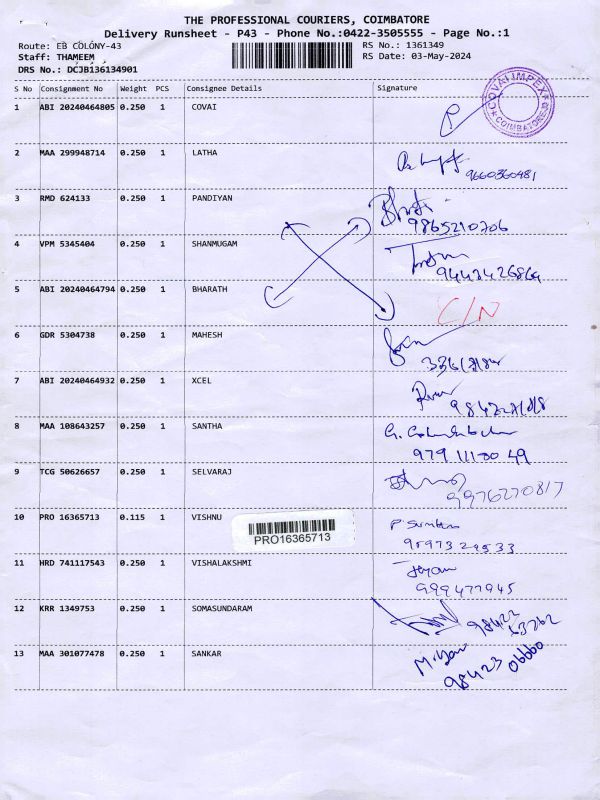 THE PROFESSIONAL COURIERS, COIMBATORE
Delivery Runsheet - P43 - Phone No.:0422-3505555 - Page No.:1
Route: EB COLONY-43
RS No.: 1361349
Staff: THAMEEM
RS Date: 03-May-2024
DRS No.: DCJB136134901
S No Consignment No Weight PCS Consignee Details Signature
1 ABI 20240464805 0.250 1 COVAI
COVAI IMPEX
COIMBATORE
2 MAA 299948714 0.250 1 LATHA
9660360481
3 RMD 624133 0.250 1 PANDIYAN
9865210706
4 VPM 5345404 0.250 1 SHANMUGAM
5 ABI 20240464794 0.250 1 BHARATH C/N
6 GDR 5304738 0.250 1 MAHESH
7 ABI 20240464932 0.250 1 XCEL
8 MAA 108643257 0.250 1 SANTHA
9 TCG 50626657 0.250 1 SELVARAJ
9976270817
10 PRO 16365713 0.115 1 VISHNU
PRO16365713
9597329533
11 HRD 741117543 0.250 1 VISHALAKSHMI
999477945
12 KRR 1349753 0.250 1 SOMASUNDARAM
98422
63762
13 MAA 301077478 0.250 1 SANKAR
98423 06660